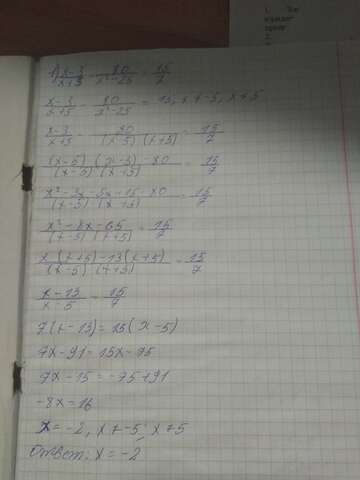 1) x-3/x+5 - 80/x²-25 = 15/7
x-3/x+5 - 80/x²-25 = 15, x≠-5, x≠5
x-3/x+5 - 80/(x-5)(x+5) = 15/7
(x-5)(x-3)-80/(x-5)(x+5) = 15/7
x²-3x-5x-15-80/(x-5)(x+5) = 15/7
x²-8x-65/(x-5)(x+5) = 15/7
x(x+5)-13(x+5)/(x-5)(x+5) = 15/7
x-13/x-5 = 15/7
7(x-13)=15(x-5)
7x-91=15x-75
7x-15=-75+91
-8x=16
x=-2, x≠-5, x≠5
Ответ: x=-2